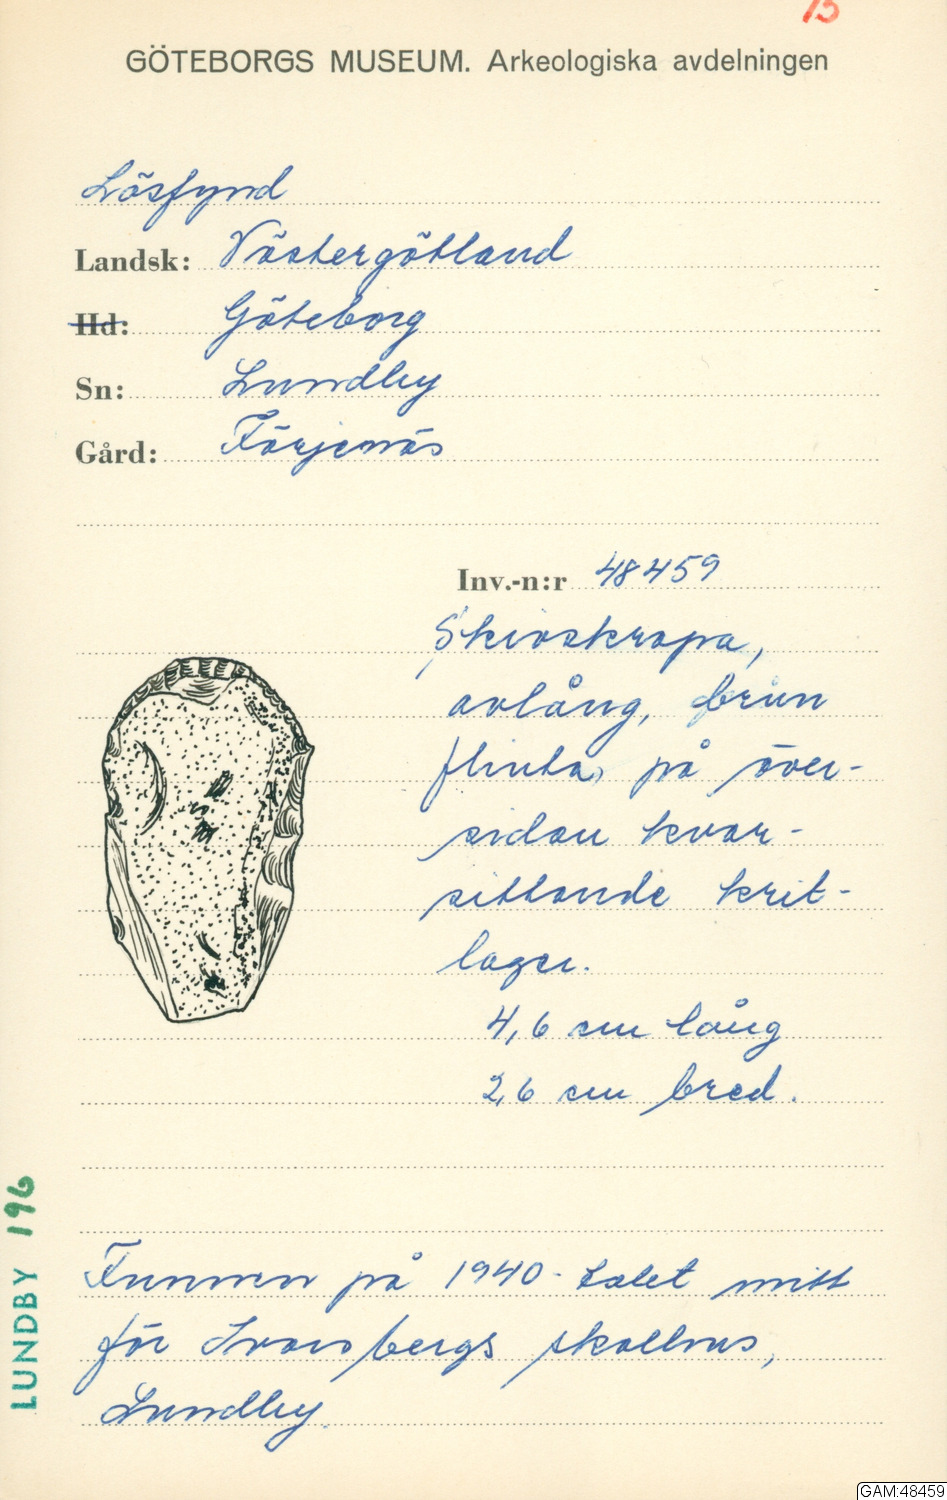 B
GÖTEBORGS MUSEUM. Arkeologiska avdelningen
Lösfynd
Landsk: Västergötland
Hd: Göteborg
Sn: Lundby
Gård: Färjenäs
Inv.-n:r 48459
Skivskrapa,
avlång, brun
flinta, på över-
sidan kvar-
sittande krit-
lager.
4,6 cm lång
2,6 cm bred.
LUNDBY 196
Funnen på 1940-talet mitt
för skolhus,
Lundby.
GAM:48459